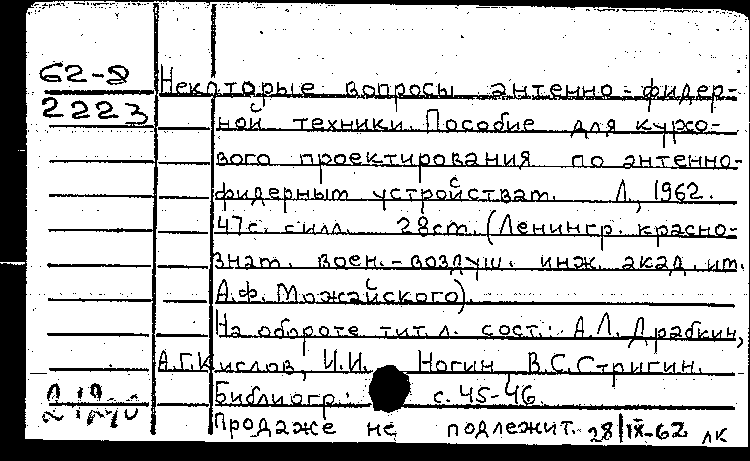 62-8 Некоторые вопросы антенно-фидер-
2223 ной техники. Пособие для курсо-
вого проектирования по антенно-
фидерным устройствам. Л., 1962.
47с. с илл. 28см. (Ленингр. красно-
знам. воен.-воздуш. инж. акад. им.
А.Ф. Можайского).
На обороте тит.л. сост.: А.Л. Драбкин,
А.Г. Кислов, И.И. Ногин, В.С. Стригин.
Библиогр.: с. 45-46.
Продаже не подлежит. 28/IX-62 лк